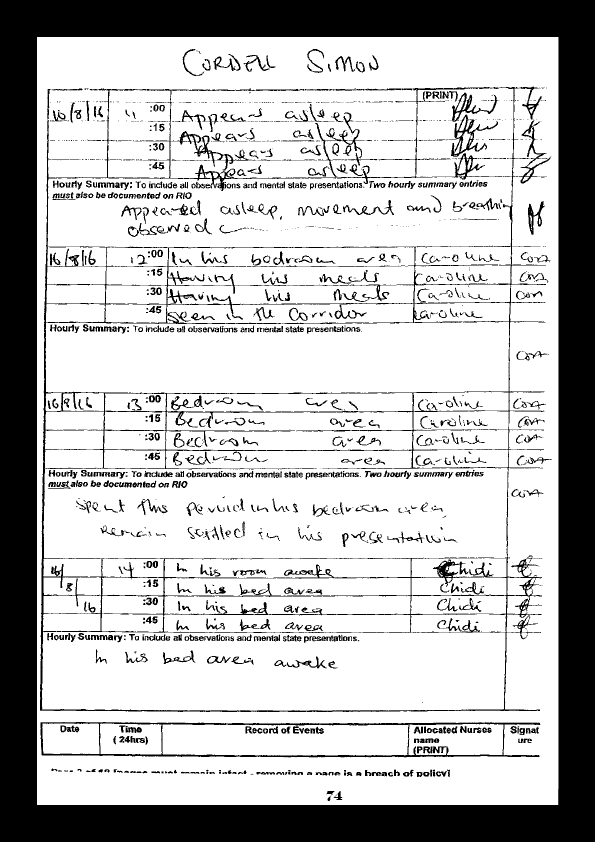 CORDELL SIMON
(PRINT)
16/8/16 11 :00 Appears asleep
:15 Appears asleep
:30 Appears asleep
:45 Appears asleep
Hourly Summary: To include all observations and mental state presentations. Two hourly summary entries
must also be documented on RIO
Appeared asleep, movement and breathing
observed
16/8/16 12:00 In his bedroom area Caroline
:15 Having his meals Caroline
:30 Having his meals Caroline
:45 seen in the Corridor Caroline
Hourly Summary: To include all observations and mental state presentations.
16/8/16 13 :00 Bedroom area Caroline
:15 Bedroom area Caroline
:30 Bedroom area Caroline
:45 Bedroom area Caroline
Hourly Summary: To include all observations and mental state presentations. Two hourly summary entries
must also be documented on RIO
Spent this period in his bedroom area,
remain settled in his presentation
16/8/16 14 :00 In his room awake Chidi
:15 In his bed area Chidi
:30 In his bed area Chidi
:45 In his bed area Chidi
Hourly Summary: To include all observations and mental state presentations.
In his bed area awake
Date Time (24hrs) Record of Events Allocated Nurses name (PRINT) Signature
removing a page is a breach of policy]
74